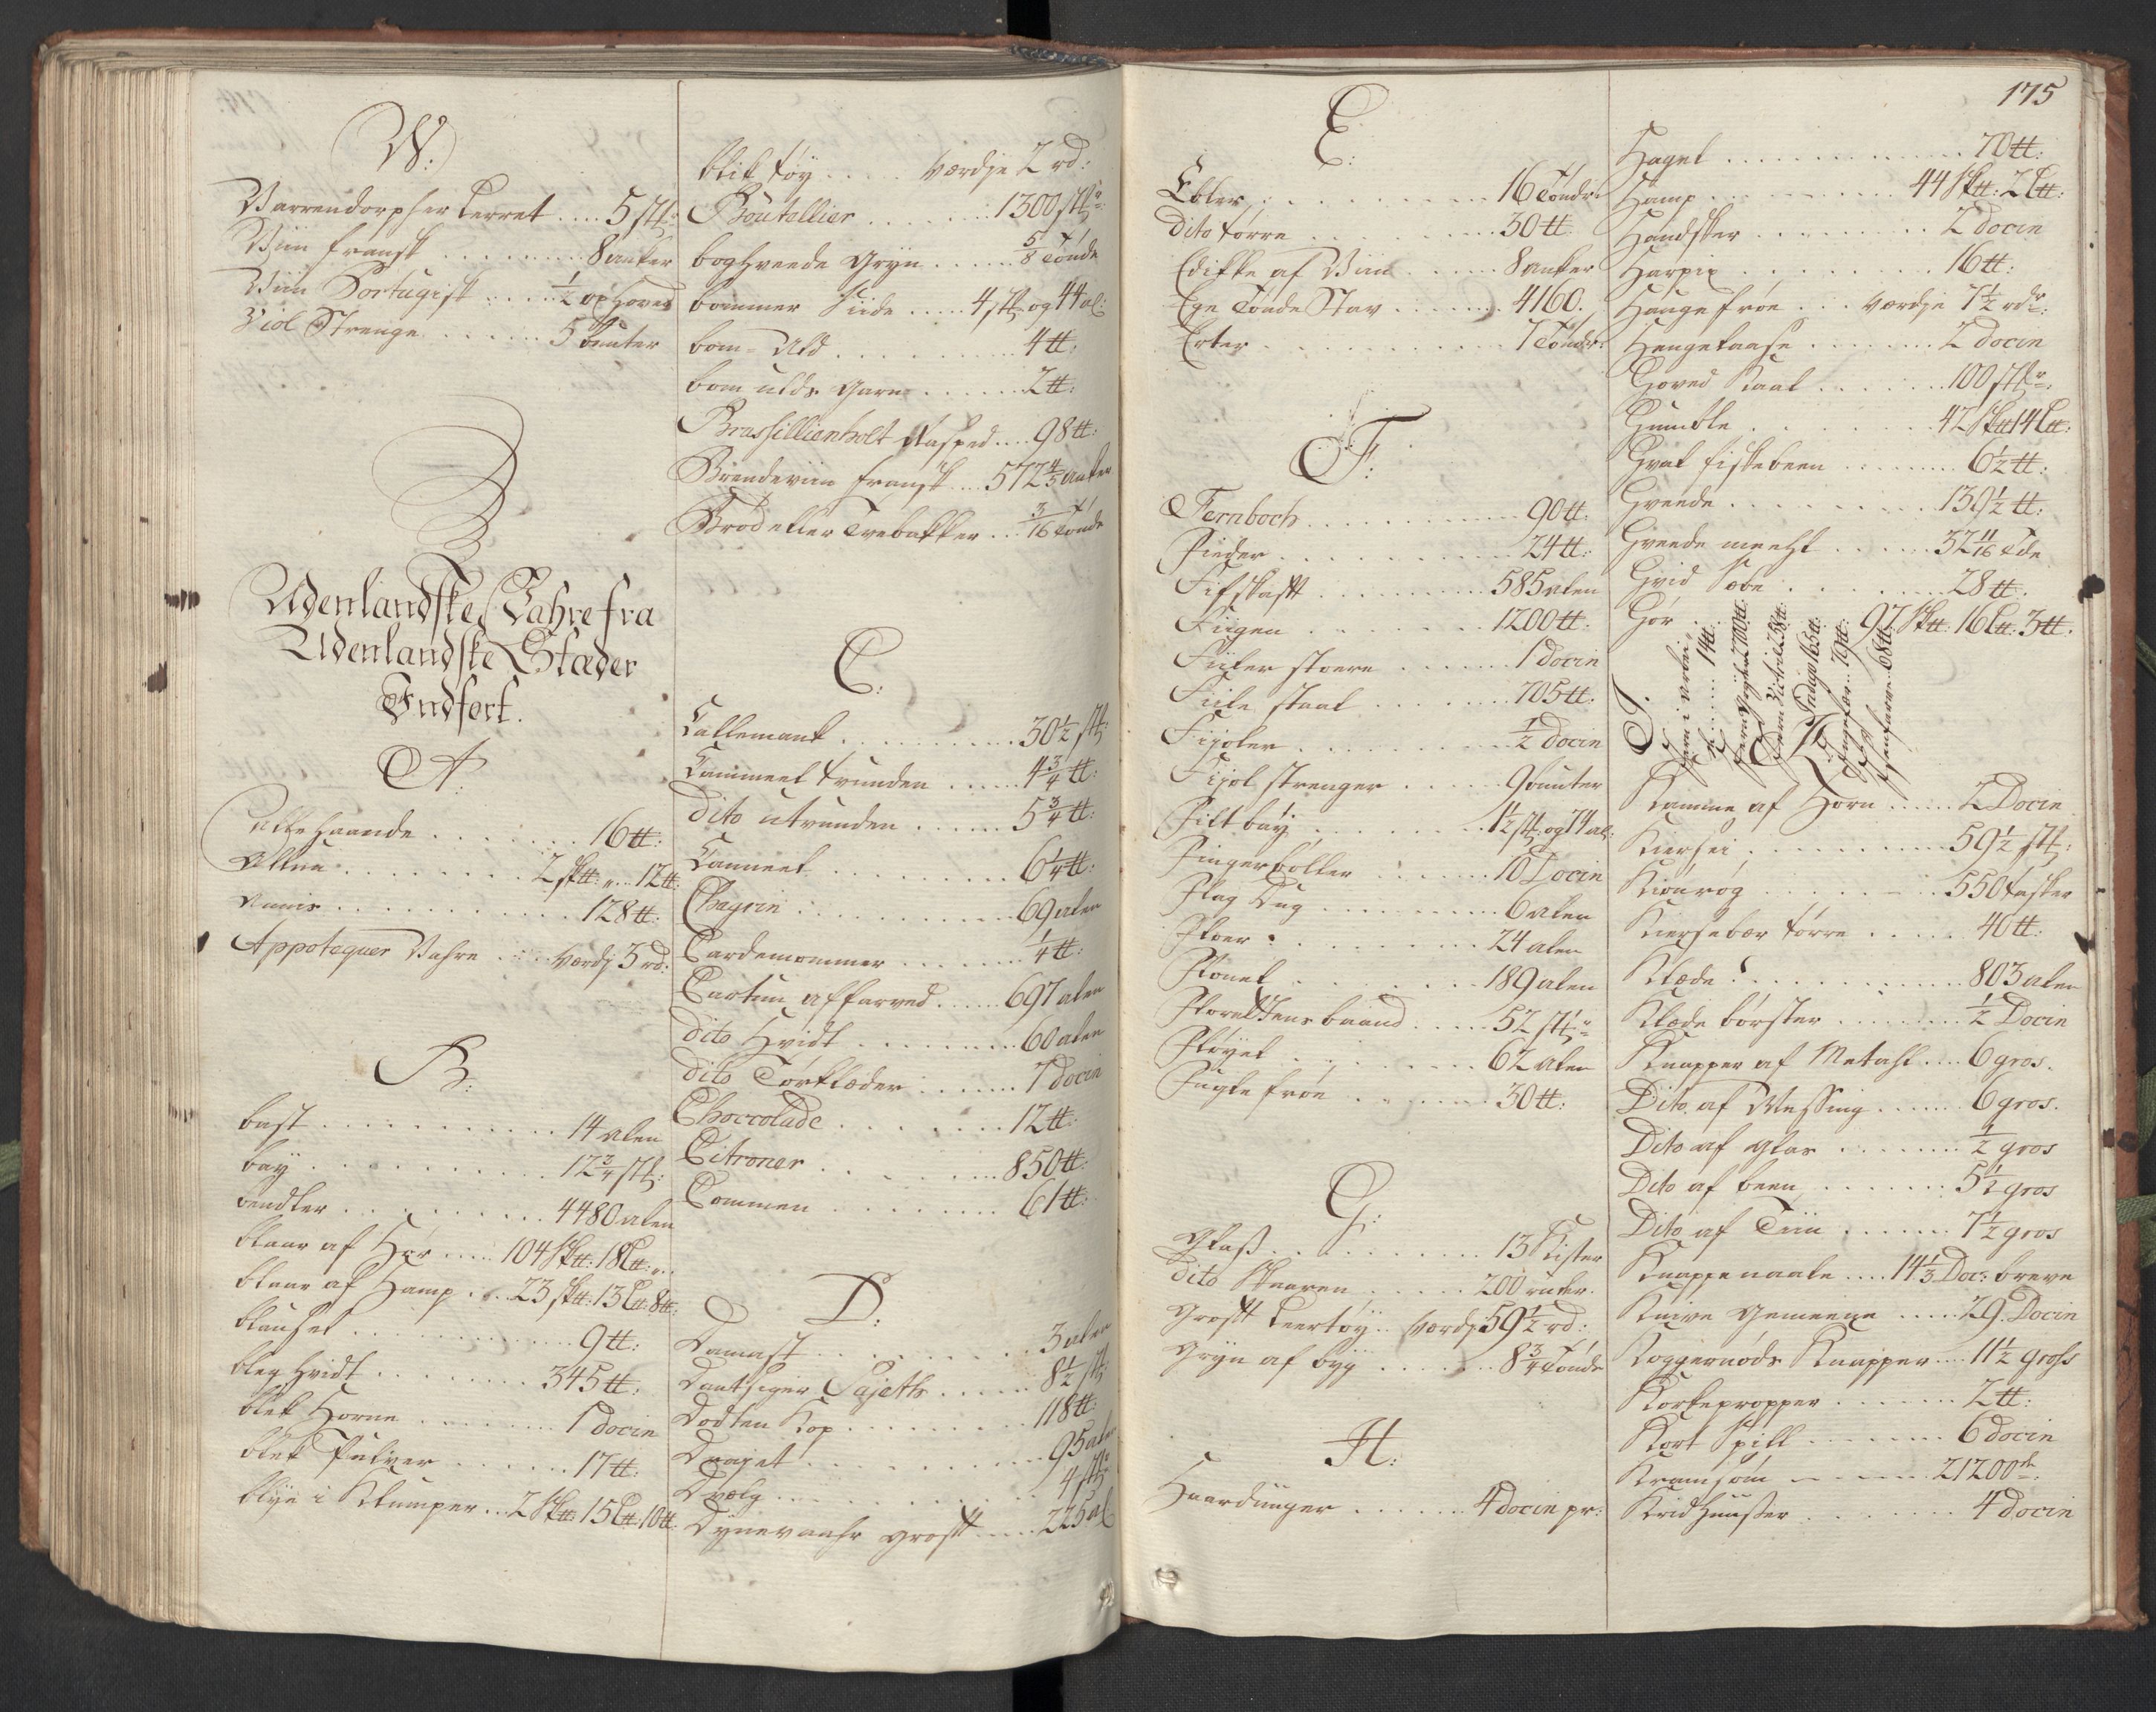 W:
Warrendorpher Lerret .... 5 stk:
Viin fransk ........ 8 anker
Viin Portugisk ..... ½ oxhoved
Viol Strenge ...... 5 bunter
Udenlandske Vahre fra
Udenlandske Stæder
Indført.
A:
Allehaande ...... 16 ℔:
Allun ........ 2 sk℔: „ .. 12 ℔:
Annis .......... 128 ℔:
Appotequer Vahre .... værdj 3 rd:
B:
bast .......... 14 alen
baÿ .......... 12¾ stk:
bendler ......... 4480 alen
blaar af Hør .... 104 Sk℔: 18 L℔: „ ..
blaar af Hamp ... 23 sk℔: 13 L℔: 8 ℔:
blaahel .......... 9 ℔:
bleg hvidt ....... 345 ℔:
blek Horne ....... 1 docin
blek Pulver ...... 17 ℔:
blye i Klumper ... 2 Sk℔: 15 L℔: 10 ℔:
blik tøy .... værdje 2 rd:
Bouteillier ....... 1300 stk:
boghveede Gryn ...... ⅝ Tønde
bommer Siide ..... 4 stk: og 44 al:
bom-Uld .......... 4 ℔:
bomulds Garn ...... 2 ℔:
Brassillienholt Rasped .... 98 ℔:
Brendeviin fransk ... 572⅘ anker
Brød eller Tvebakker ... 3/16 Tønde
C:
Callemank ......... 30½ stk:
Cammeel tvunden ..... 4¾ ℔:
dito utvunden ...... 5¾ ℔:
Canneel ......... 6¼ ℔:
Chagrin .......... 69 alen
Cardemommer ....... ¼ ℔:
Cartun affarved ...... 697 alen
dito Hvidt ......... 60 alen
dito Tørklæder ...... 7 docin
Choccolade ........ 12 ℔:
Citroner ......... 850 ℔:
Commen ......... 61 ℔:
D:
Damask .......... 3 alen
Dantsiger Sajetts ..... 8½ stk:
Dodten Kop ....... 118 ℔:
Draget ......... 95 alen
Dvælg .......... 4 stk:
Dynevaahr groft .... 225 al
175
E:
Ebler ......... 16 Tønder
dito tørre ......... 30 ℔:
Edikke af Viin ...... 8 anker
Ege Tønde Stav ....... 4160.
Erter .......... 7 Tønder
F:
Fernboch ......... 90 ℔:
Fieder .......... 24 ℔:
Fifskaft ........ 585 alen
Fiigen ........ 1200 ℔:
Fiiler stoere ...... 1 docin
Fiile staal ....... 705 ℔:
Fijoler ......... ½ docin
Fijol strenger ..... 9 bunter
Filt baÿ ........ 1½ stk: og 74 al:
Fingerbøller ...... 10 Docin
Flag Dug ........ 6 alen
Floer ......... 24 alen
Flonel ........ 189 alen
Florettens baand ..... 52 stk:
Fløyel ........ 62 alen
Fugle frøe ....... 30 ℔:
G:
Glass .......... 13 Kister
dito Skaaren ...... 200 ruder.
Groft Leertøy .. værdj: 59½ rd:
Gryn af byg ...... 8¾ Tønde
H:
Haardunger ...... 4 docin pr:
Hagel ............ 70 ℔:
Hamp ........ 44 Sk℔: 2 L℔:
Handsker ......... 2 docin
Harpix ........ 16 ℔:
Haugefrøe ... værdje 7½ rdr:
Hengelaase ........ 2 docin
Hoved Kaal ...... 100 stkr:
Humble ........ 42 Sk℔ 14 L℔:
Hval fiskebeen ....... 6½ ℔:
Hveede ......... 139½ ℔:
Hveede meehl ...... 32 11/16 Tde
Hvid Sæbe ....... 28 ℔.
Hør ...... 97 Sk℔: 16 L℔: 3 ℔:
J.
Jern Vitril 258 ℔:
Indigo 165 ℔:
Ingefær .. 79 ℔:
K:
Kamme af Horn ..... 2 Docin
Kiersei ......... 59½ stk:
Kiønrøg ........ 550 tasker
Kiersebær tørre ..... 40 ℔:
Klæde ........... 803 alen
Klæde børster ....... ½ Docin
Knapper af Metahl .... 6 gros.
Dito af Messing ...... 6 gros.
Dito af glas ....... ½ gros
Dito af been ....... 5½ gros
Dito af Tiin ...... 7½ gros
Knappenaale .... 14⅓ Doc: breve
Knive Gemeene ..... 29. Docin
Koggernøds Knapper .... 11½ gross
Korkepropper ....... 2 ℔:
Kort Spill ....... 6 docin
Kramsøm ....... 21200 st:
Kridhuuser ....... 4 docin